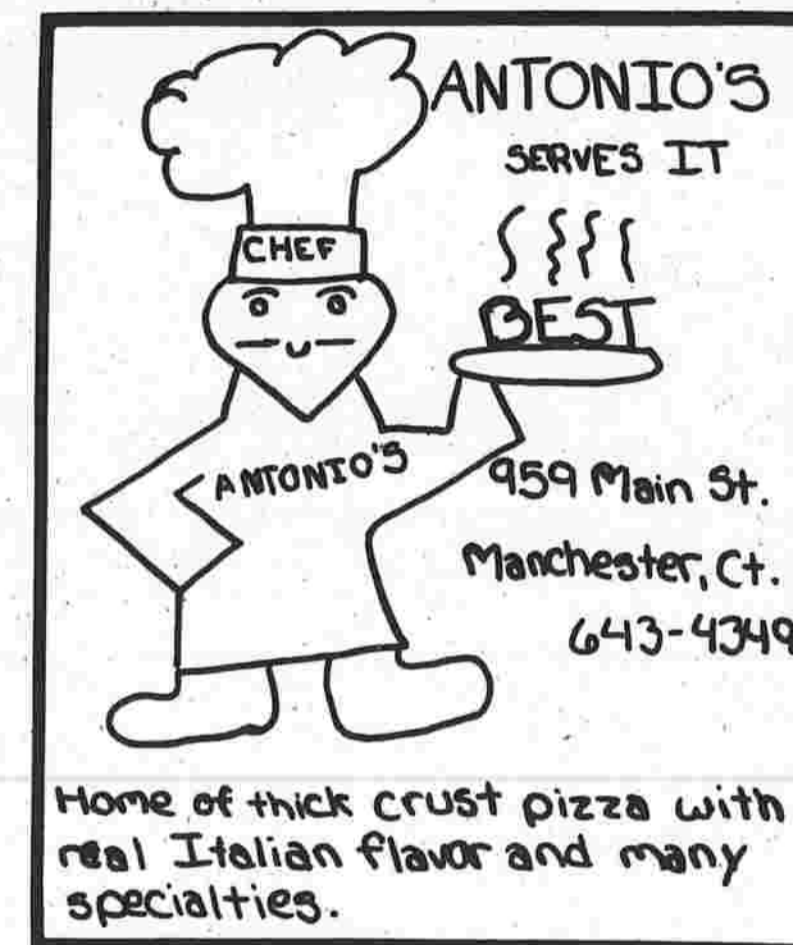 ANTONIO'S
SERVES IT
CHEF
BEST
ANTONIO'S
959 Main St.
Manchester, Ct.
643-4349
Home of thick crust pizza with
real Italian flavor and many
specialties.